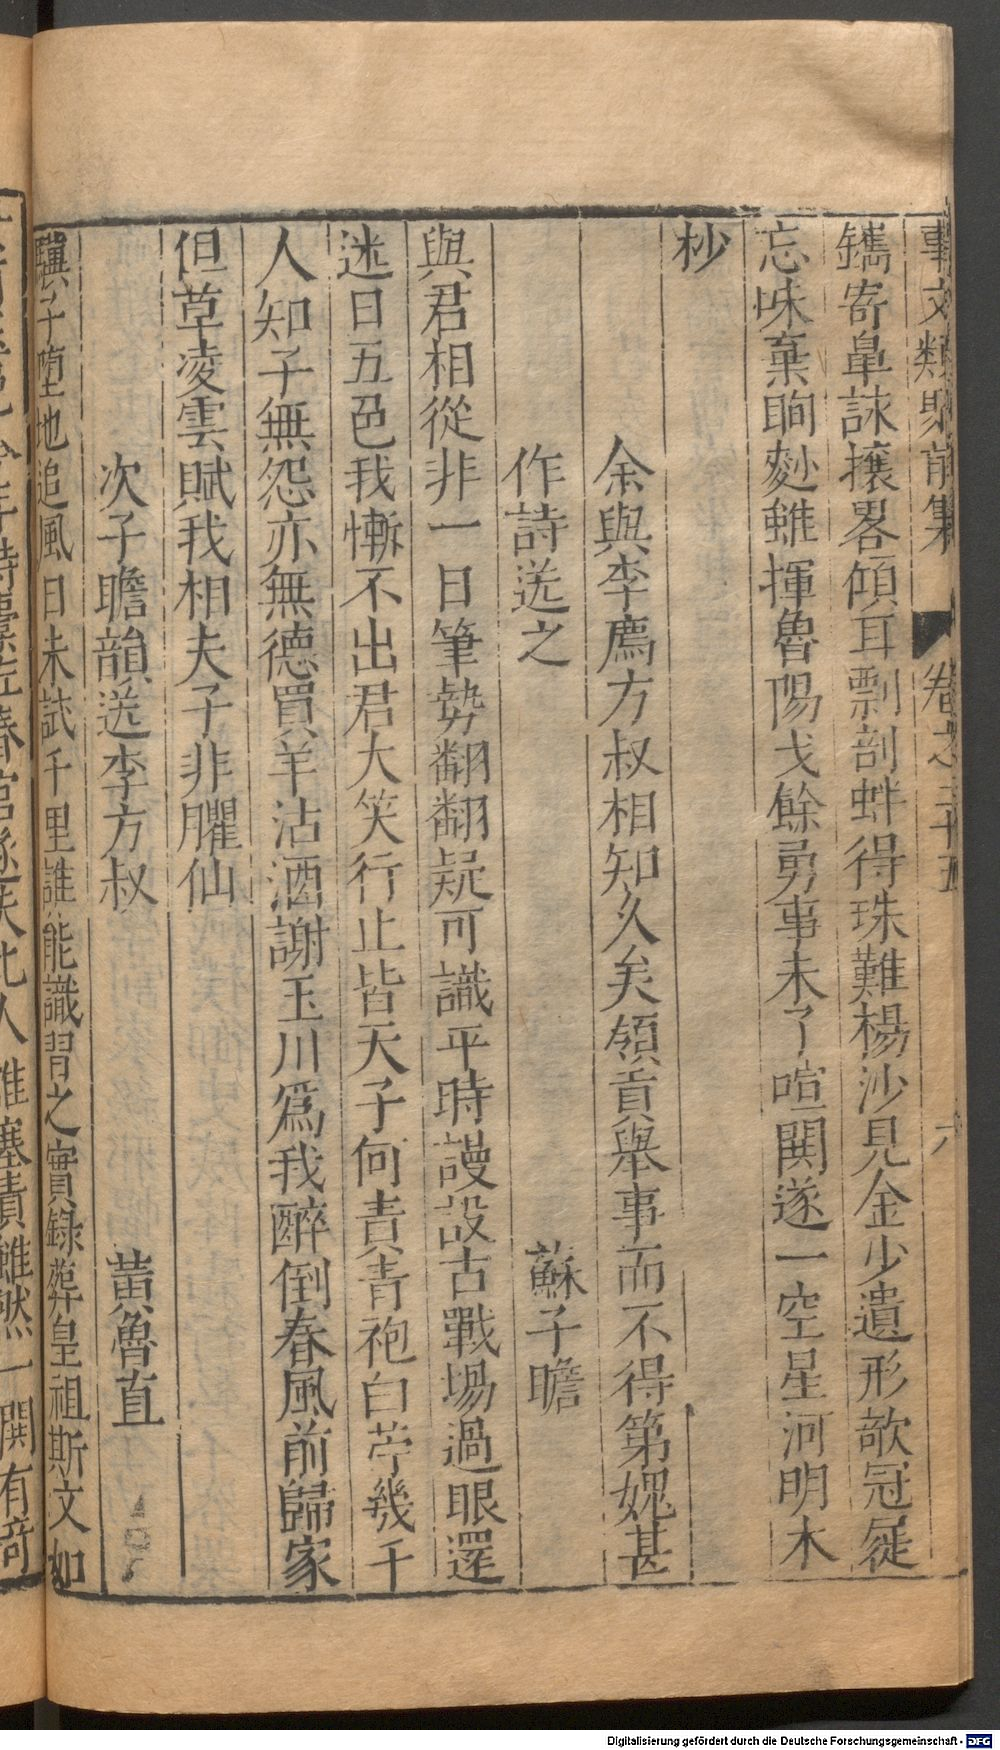 事文類聚前集 卷之三十五 六
鐫寄皐詠攘畧傾耳剽剖蚌得珠難楊沙見金少遺形欹冠屣
忘味棄眴麨雖揮魯陽戈餘勇事未了喧闐遂一空星河明木
杪
余與李廌方叔相知久矣領貢舉事而不得第媿甚
作詩送之 蘇子瞻
與君相從非一日筆勢翩翩疑可識平時謾說古戰場過眼還
迷日五色我慚不出君大笑行止皆天子何責青袍白苧幾千
人知子無怨亦無德買羊沽酒謝玉川爲我醉倒春風前歸家
但草凌雲賦我相夫子非臞仙
次子瞻韻送李方叔 黃魯直
驥子墮地追風日未試千里誰能識習之實錄葬皇祖斯文如
Digitalisierung gefördert durch die Deutsche Forschungsgemeinschaft - DFG